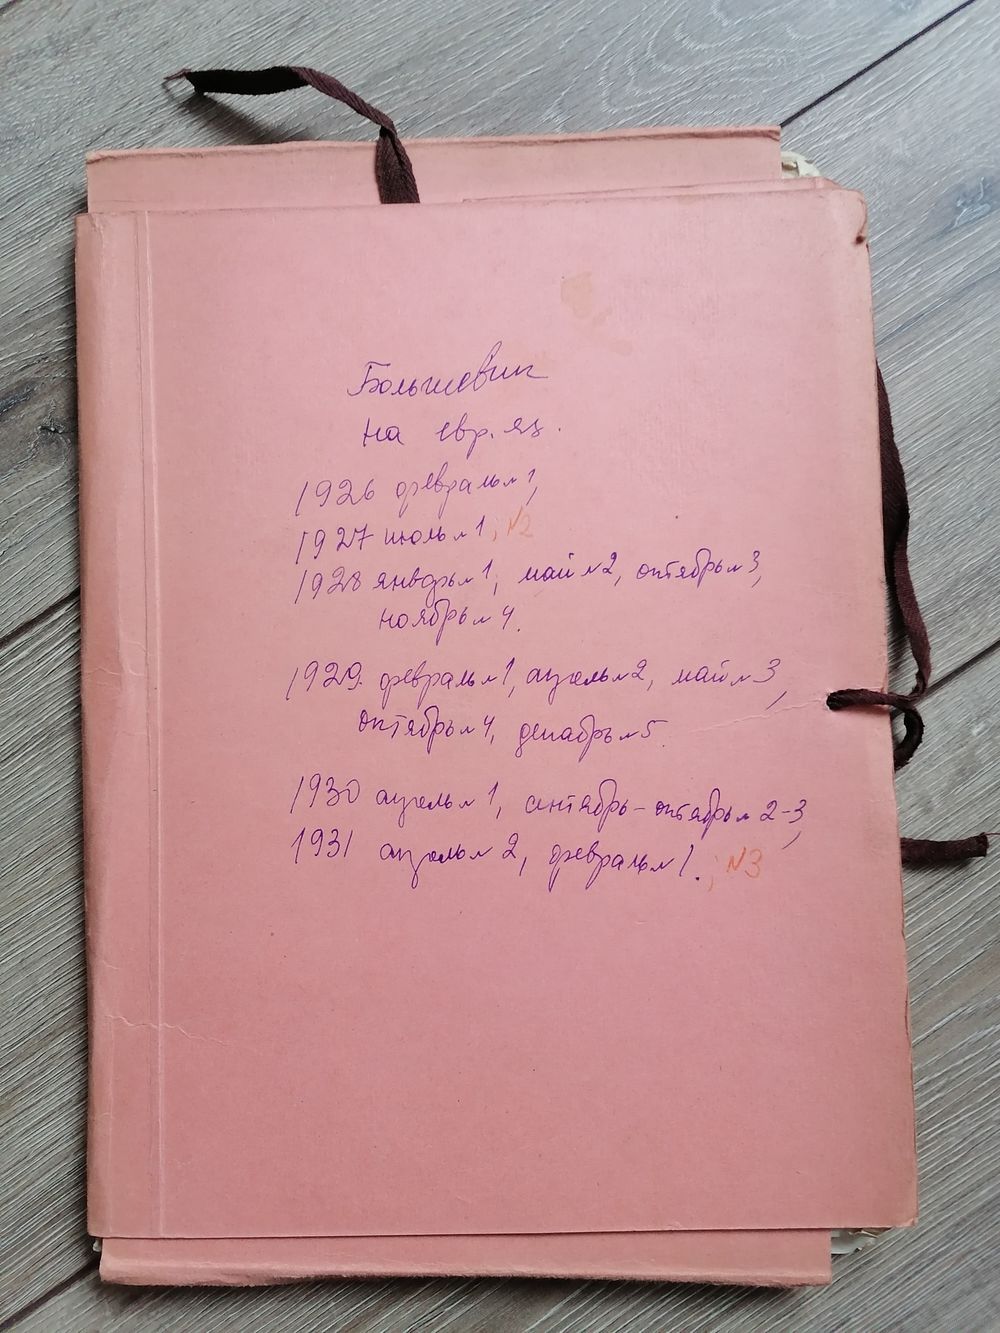 Большевик
на евр. яз.
1926 февраль №1,
1927 июль №1; №2
1928 январь №1, май №2, октябрь №3,
ноябрь №4.
1929. февраль №1, апрель №2, май №3,
октябрь №4, декабрь №5.
1930 апрель №1, сентябрь-октябрь №2-3,
1931 апрель №2, февраль №1.; №3